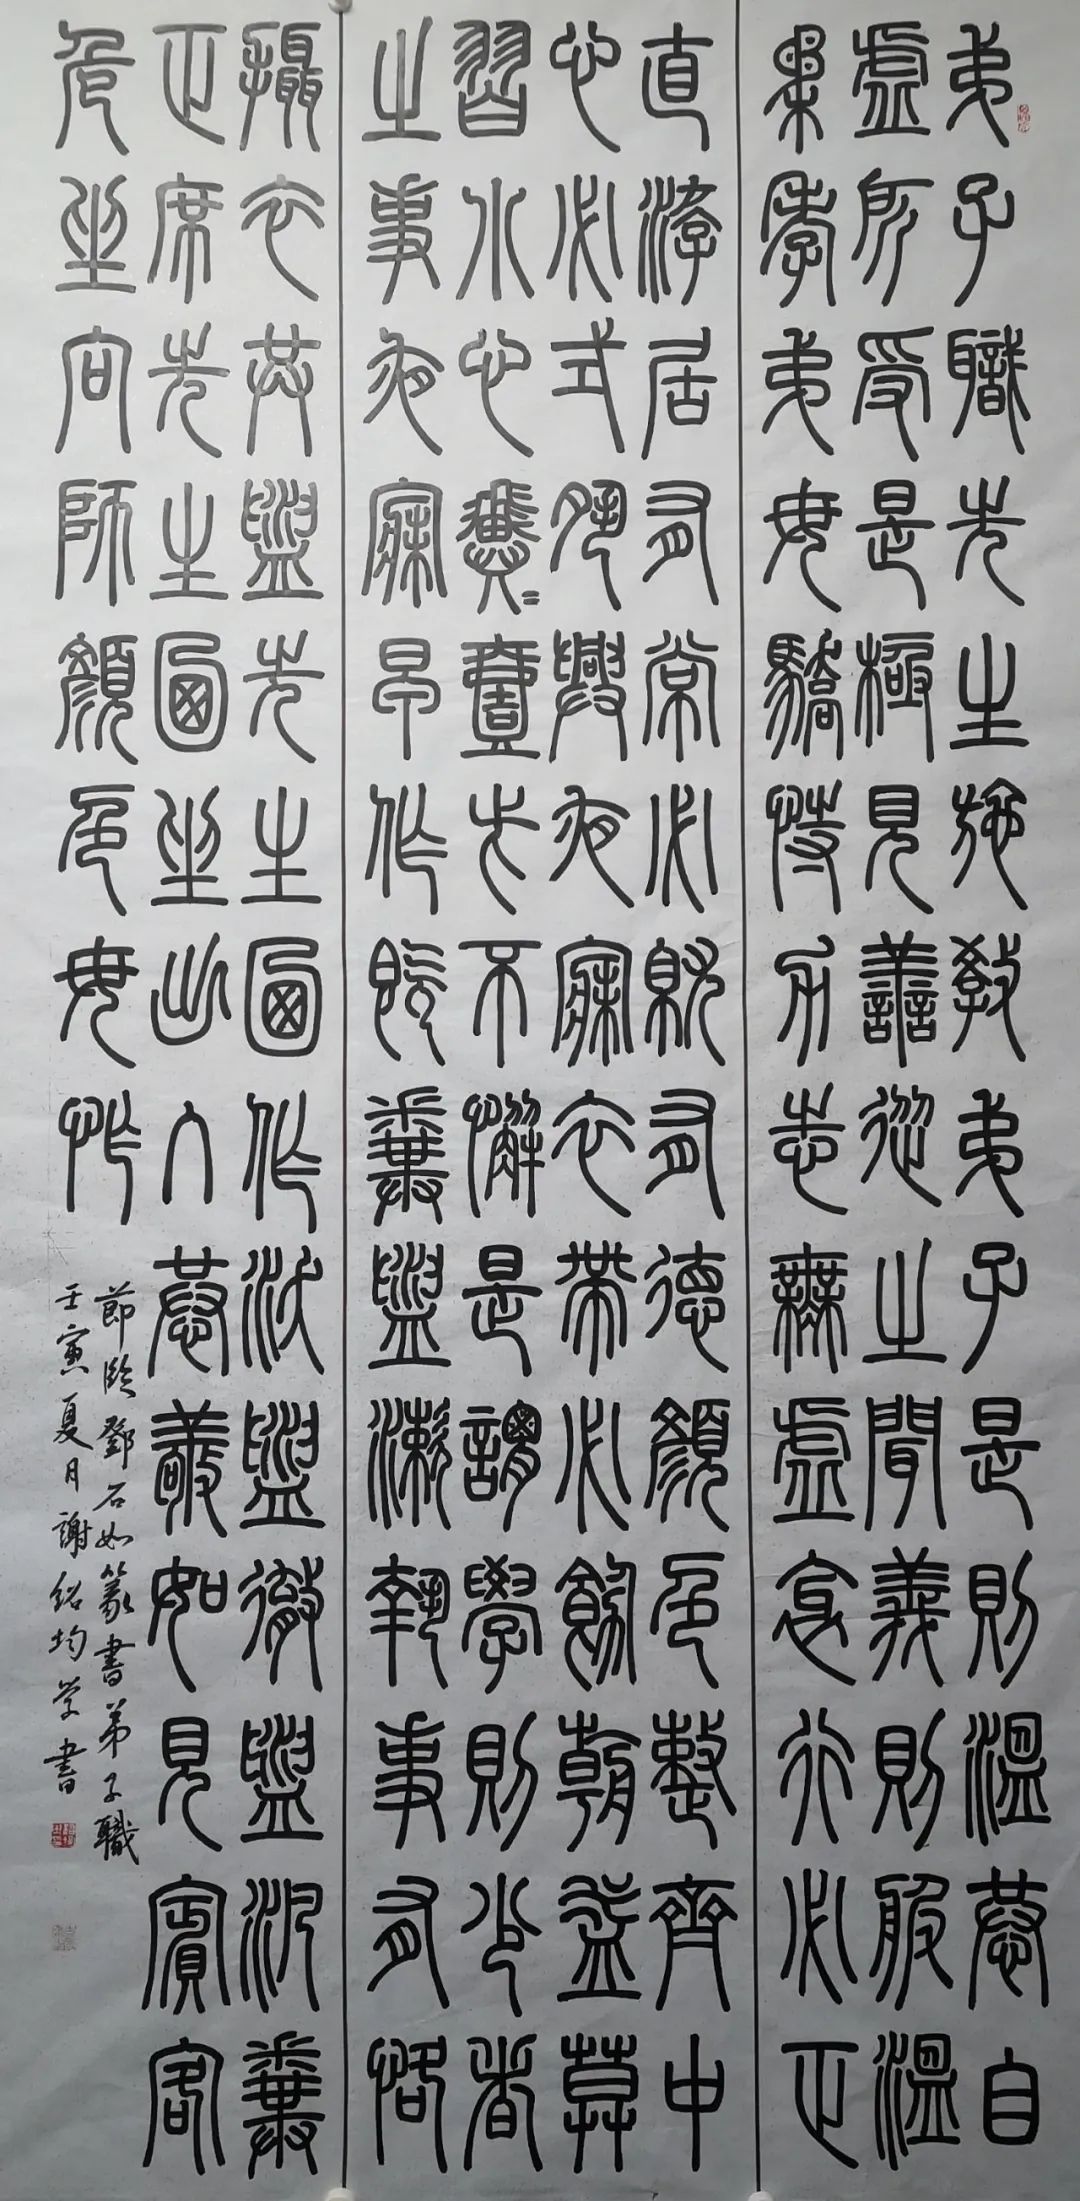 弟子職先生施教弟子是則溫恭自
虛所受是極見善從之聞義則服溫
柔孝弟毋驕恃力志無虛衺行必正
直游居有常必就有德顏色整齊中
心必式夙興夜寐衣帶必飭朝益莫
習小心翼=壹此不懈是謂學則少者
之事夜寐早作既糞盥漱執事有恪
攝衣共盥先生迺作沃盥徹盥汎糞
正席先生迺坐出入恭敬如見賓客
危坐向師顏色毋怍
節臨鄧石如篆書弟子職
壬寅夏月謝紹均学書